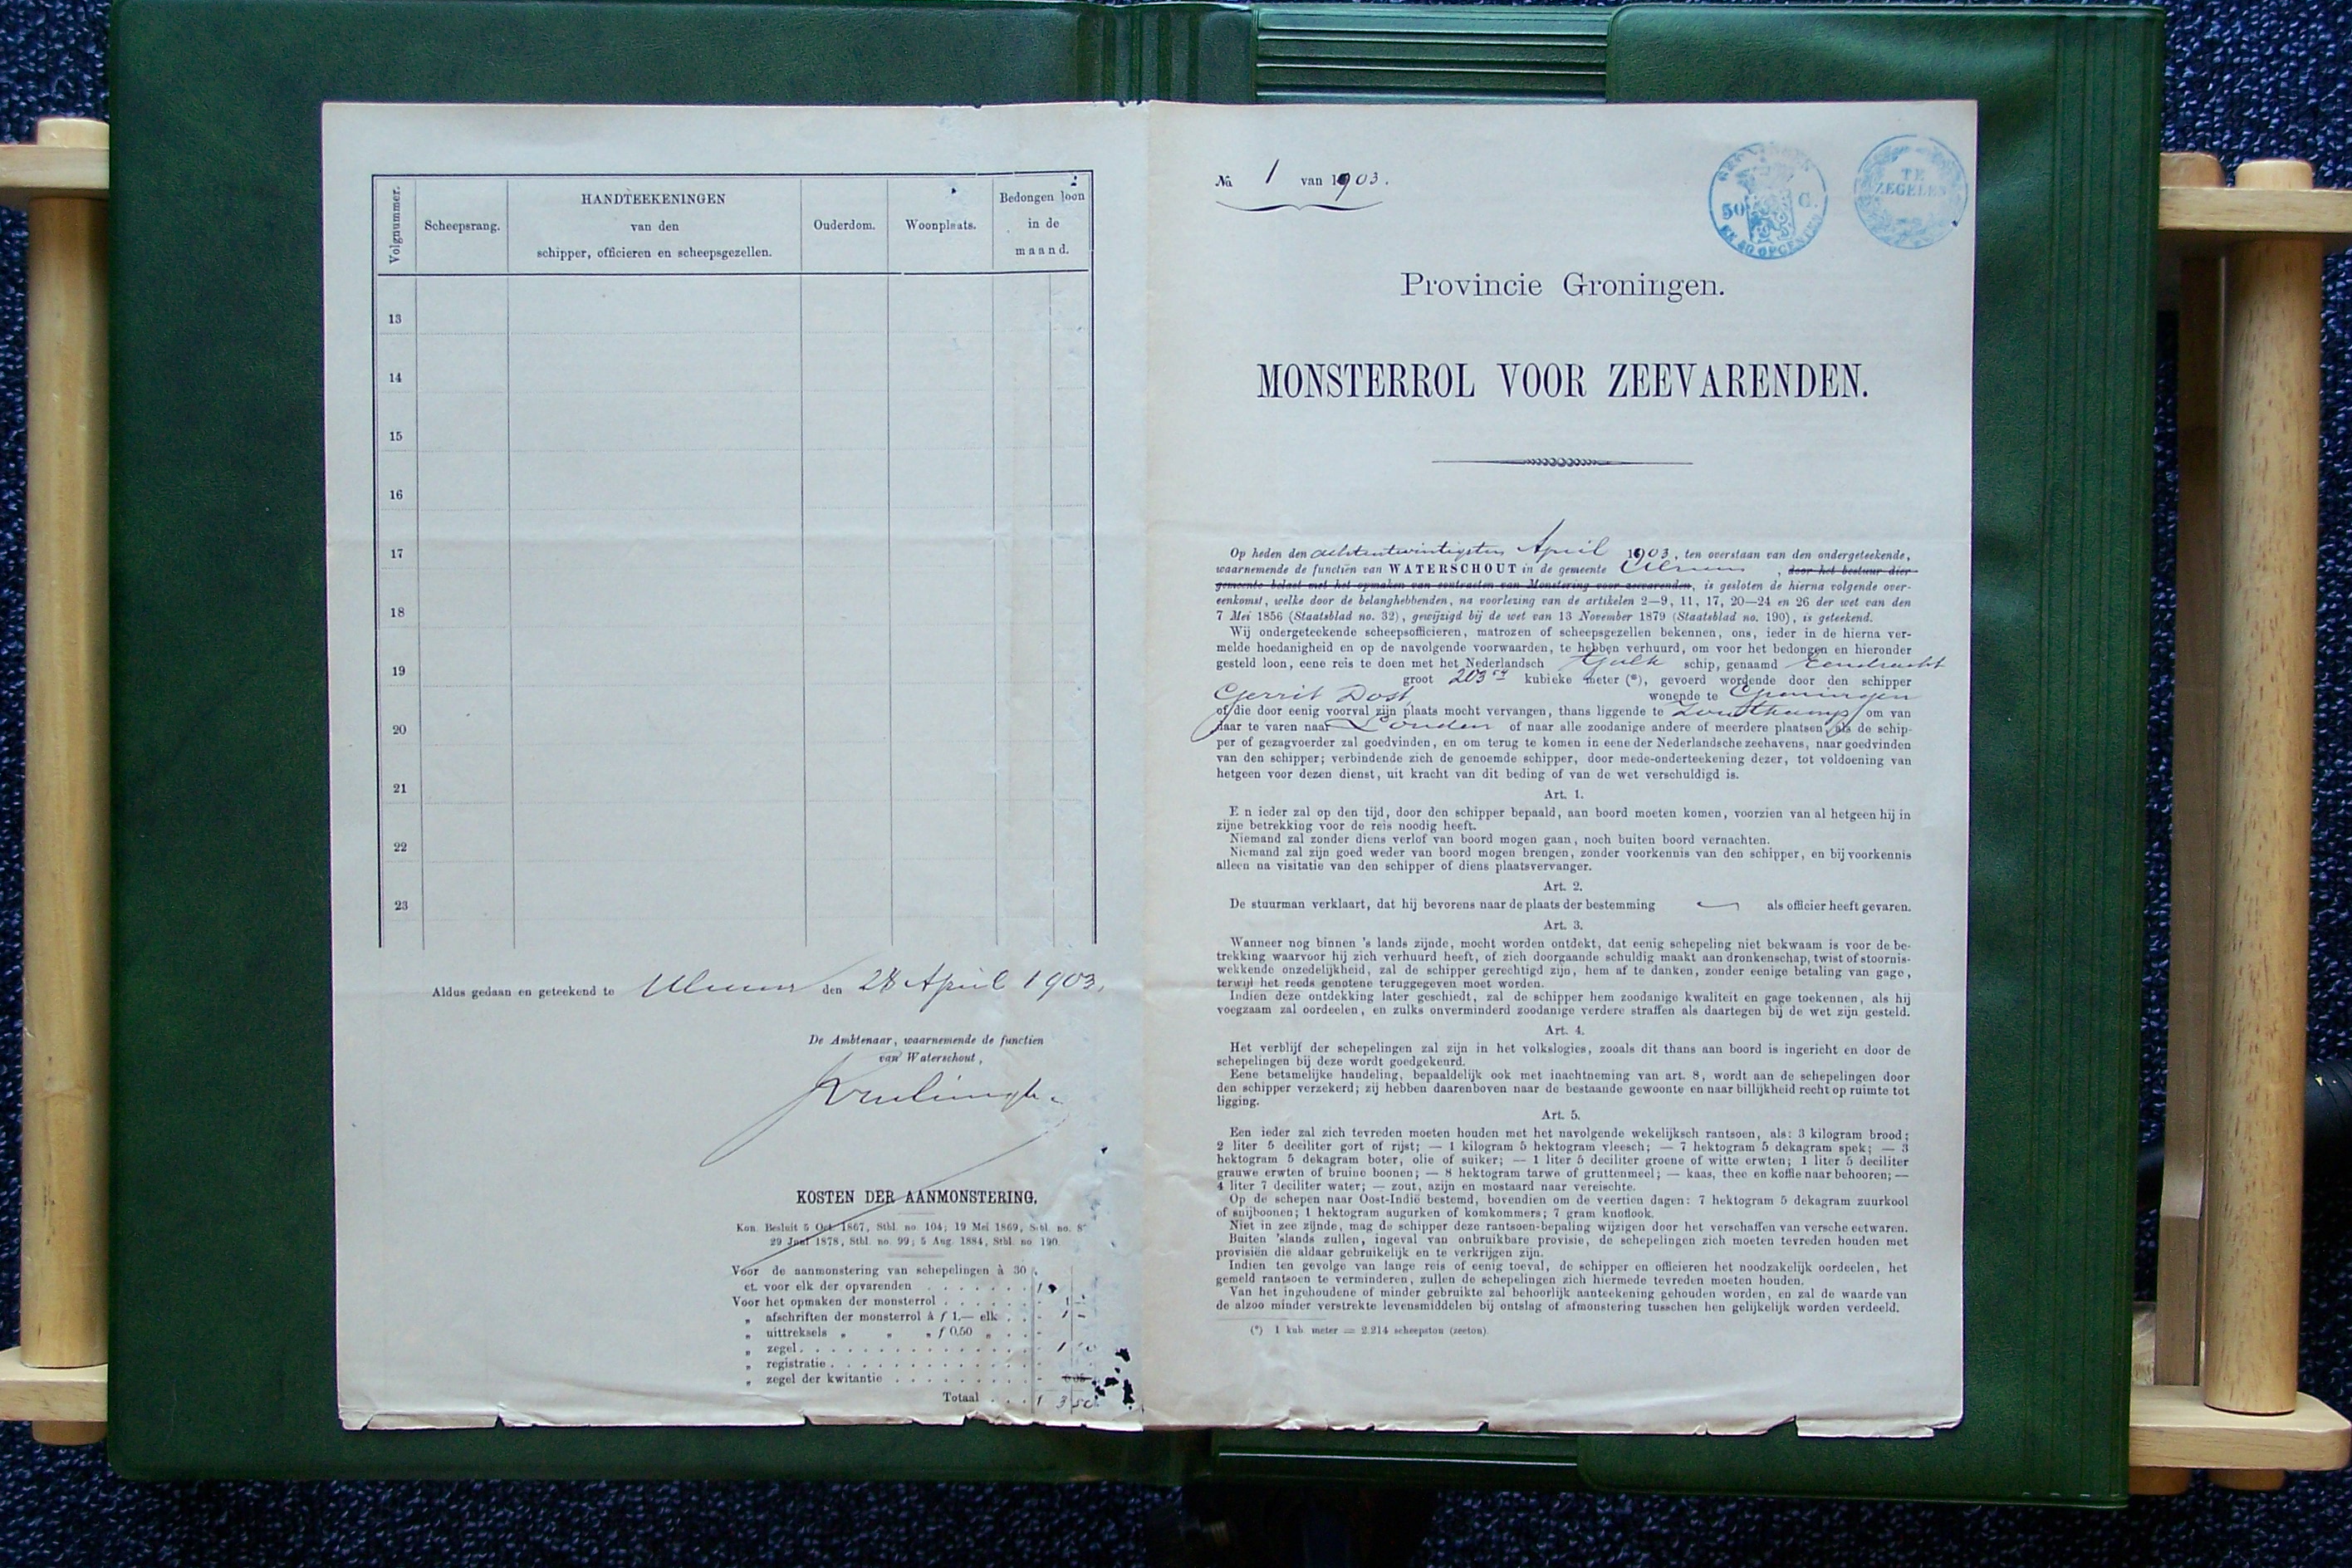 Volgnummer.
Scheepsrang.
HANDTEEKENINGEN
van den
schipper, officieren en scheepsgezellen.
Ouderdom.
Woonplaats.
Bedongen loon
in de
maand.
13
14
15
16
17
18
19
20
21
22
23
Aldus gedaan en geteekend te Ulrum den 28 April 1903.
De Ambtenaar, waarnemende de functien
van Waterschout,
KOSTEN DER AANMONSTERING.
Kon. Besluit 5 Oct. 1867, Stbl. no. 104; 19 Mei 1869, Stbl. no. 8
29 Juni 1878, Stbl. no. 99; 5 Aug. 1884, Stbl. no 190.
Voor de aanmonstering van schepelingen à 30
ct. voor elk der opvarenden
Voor het opmaken der monsterrol 1 -
„ afschriften der monsterrol à f 1.— elk 1 -
„ uittreksels „ „ „ f 0.50 „
„ zegel
„ registratie
„ zegel der kwitantie
Totaal 3 50
No 1 van 1903.
50 C.
TE
ZEGELEN
Provincie Groningen.
MONSTERROL VOOR ZEEVARENDEN.
Op heden den achtentwintigsten April 1903, ten overstaan van den ondergeteekende,
waarnemende de functiën van WATERSCHOUT in de gemeente Ulrum, door het bestuur dier
gemeente belast met het opmaken van contracten van Monstering voor zeevarenden, is gesloten de hierna volgende over-
eenkomst, welke door de belanghebbenden, na voorlezing van de artikelen 2—9, 11, 17, 20—24 en 26 der wet van den
7 Mei 1856 (Staatsblad no. 32), gewijzigd bij de wet van 13 November 1879 (Staatsblad no. 190), is geteekend.
Wij ondergeteekende scheepsofficieren, matrozen of scheepsgezellen bekennen, ons, ieder in de hierna ver-
melde hoedanigheid en op de navolgende voorwaarden, te hebben verhuurd, om voor het bedongen en hieronder
gesteld loon, eene reis te doen met het Nederlandsch Tjalk schip, genaamd Eendracht
groot 203 kubieke meter (*), gevoerd wordende door den schipper
Gerrit Dost wonende te Groningen
of die door eenig voorval zijn plaats mocht vervangen, thans liggende te Zoutkamp om van
daar te varen naar Londen of naar alle zoodanige andere of meerdere plaatsen, als de schip-
per of gezagvoerder zal goedvinden, en om terug te komen in eene der Nederlandsche zeehavens, naar goedvinden
van den schipper; verbindende zich de genoemde schipper, door mede-onderteekening dezer, tot voldoening van
hetgeen voor dezen dienst, uit kracht van dit beding of van de wet verschuldigd is.
Art. 1.
E n ieder zal op den tijd, door den schipper bepaald, aan boord moeten komen, voorzien van al hetgeen hij in
zijne betrekking voor de reis noodig heeft.
Niemand zal zonder diens verlof van boord mogen gaan, noch buiten boord vernachten.
Niemand zal zijn goed weder van boord mogen brengen, zonder voorkennis van den schipper, en bij voorkennis
alleen na visitatie van den schipper of diens plaatsvervanger.
Art. 2.
De stuurman verklaart, dat hij bevorens naar de plaats der bestemming als officier heeft gevaren.
Art. 3.
Wanneer nog binnen 's lands zijnde, mocht worden ontdekt, dat eenig schepeling niet bekwaam is voor de be-
trekking waarvoor hij zich verhuurd heeft, of zich doorgaande schuldig maakt aan dronkenschap, twist of stoornis-
wekkende onzedelijkheid, zal de schipper gerechtigd zijn, hem af te danken, zonder eenige betaling van gage,
terwijl het reeds genotene teruggegeven moet worden.
Indien deze ontdekking later geschiedt, zal de schipper hem zoodanige kwaliteit en gage toekennen, als hij
voegzaam zal oordeelen, en zulks onverminderd zoodanige verdere straffen als daartegen bij de wet zijn gesteld.
Art. 4.
Het verblijf der schepelingen zal zijn in het volkslogies, zooals dit thans aan boord is ingericht en door de
schepelingen bij deze wordt goedgekeurd.
Eene betamelijke handeling, bepaaldelijk ook met inachtneming van art. 8, wordt aan de schepelingen door
den schipper verzekerd; zij hebben daarenboven naar de bestaande gewoonte en naar billijkheid recht op ruimte tot
ligging.
Art. 5.
Een ieder zal zich tevreden moeten houden met het navolgende wekelijksch rantsoen, als: 3 kilogram brood;
2 liter 5 deciliter gort of rijst; — 1 kilogram 5 hektogram vleesch; — 7 hektogram 5 dekagram spek; — 3
hektogram 5 dekagram boter, olie of suiker; — 1 liter 5 deciliter groene of witte erwten; 1 liter 5 deciliter
grauwe erwten of bruine boonen; — 8 hektogram tarwe of gruttenmeel; — kaas, thee en koffie naar behooren; —
4 liter 7 deciliter water; — zout, azijn en mostaard naar vereischte.
Op de schepen naar Oost-Indië bestemd, bovendien om de veertien dagen: 7 hektogram 5 dekagram zuurkool
of snijboonen; 1 hektogram augurken of komkommers; 7 gram knoflook.
Niet in zee zijnde, mag de schipper deze rantsoen-bepaling wijzigen door het verschaffen van versche eetwaren.
Buiten 'slands zullen, ingeval van onbruikbare provisie, de schepelingen zich moeten tevreden houden met
provisiën die aldaar gebruikelijk en te verkrijgen zijn.
Indien ten gevolge van lange reis of eenig toeval, de schipper en officieren het noodzakelijk oordeelen, het
gemeld rantsoen te verminderen, zullen de schepelingen zich hiermede tevreden moeten houden.
Van het ingehoudene of minder gebruikte zal behoorlijk aanteekening gehouden worden, en zal de waarde van
de alzoo minder verstrekte levensmiddelen bij ontslag of afmonstering tusschen hen gelijkelijk worden verdeeld.
(*) 1 kub. meter = 2.214 scheepston (zeeton)